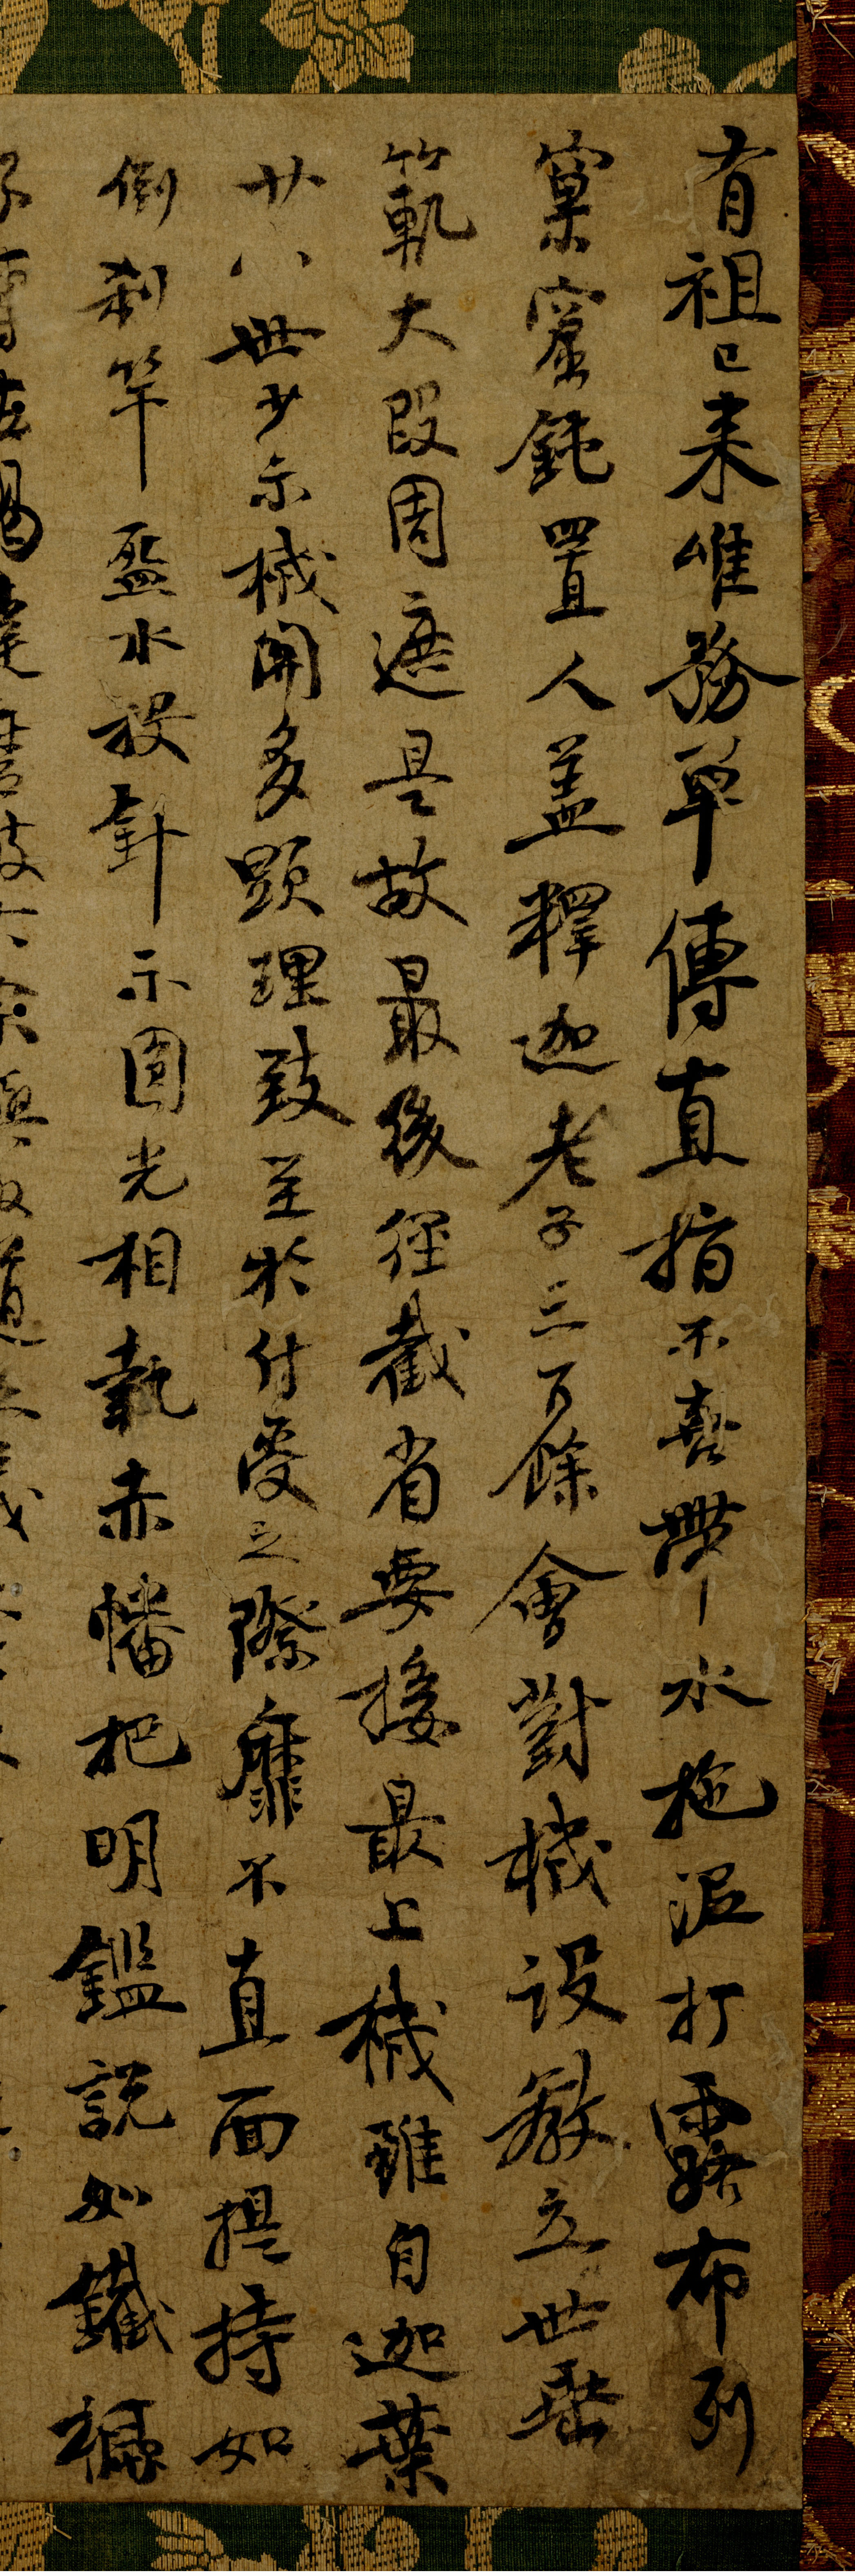 有祖已来唯務單傳直指不喜帶水拖泥打露布列
窠窟鈍置人盖釋迦老子三百餘會對機設教立世垂
範軌大段周遮是故最後徑截省要接最上機雖自迦葉
廿八世少示機開多顯理致至於付受之際靡不直面提持如
倒刹竿盌水投針示圓光相執赤幡把明鑑説如鐵橛